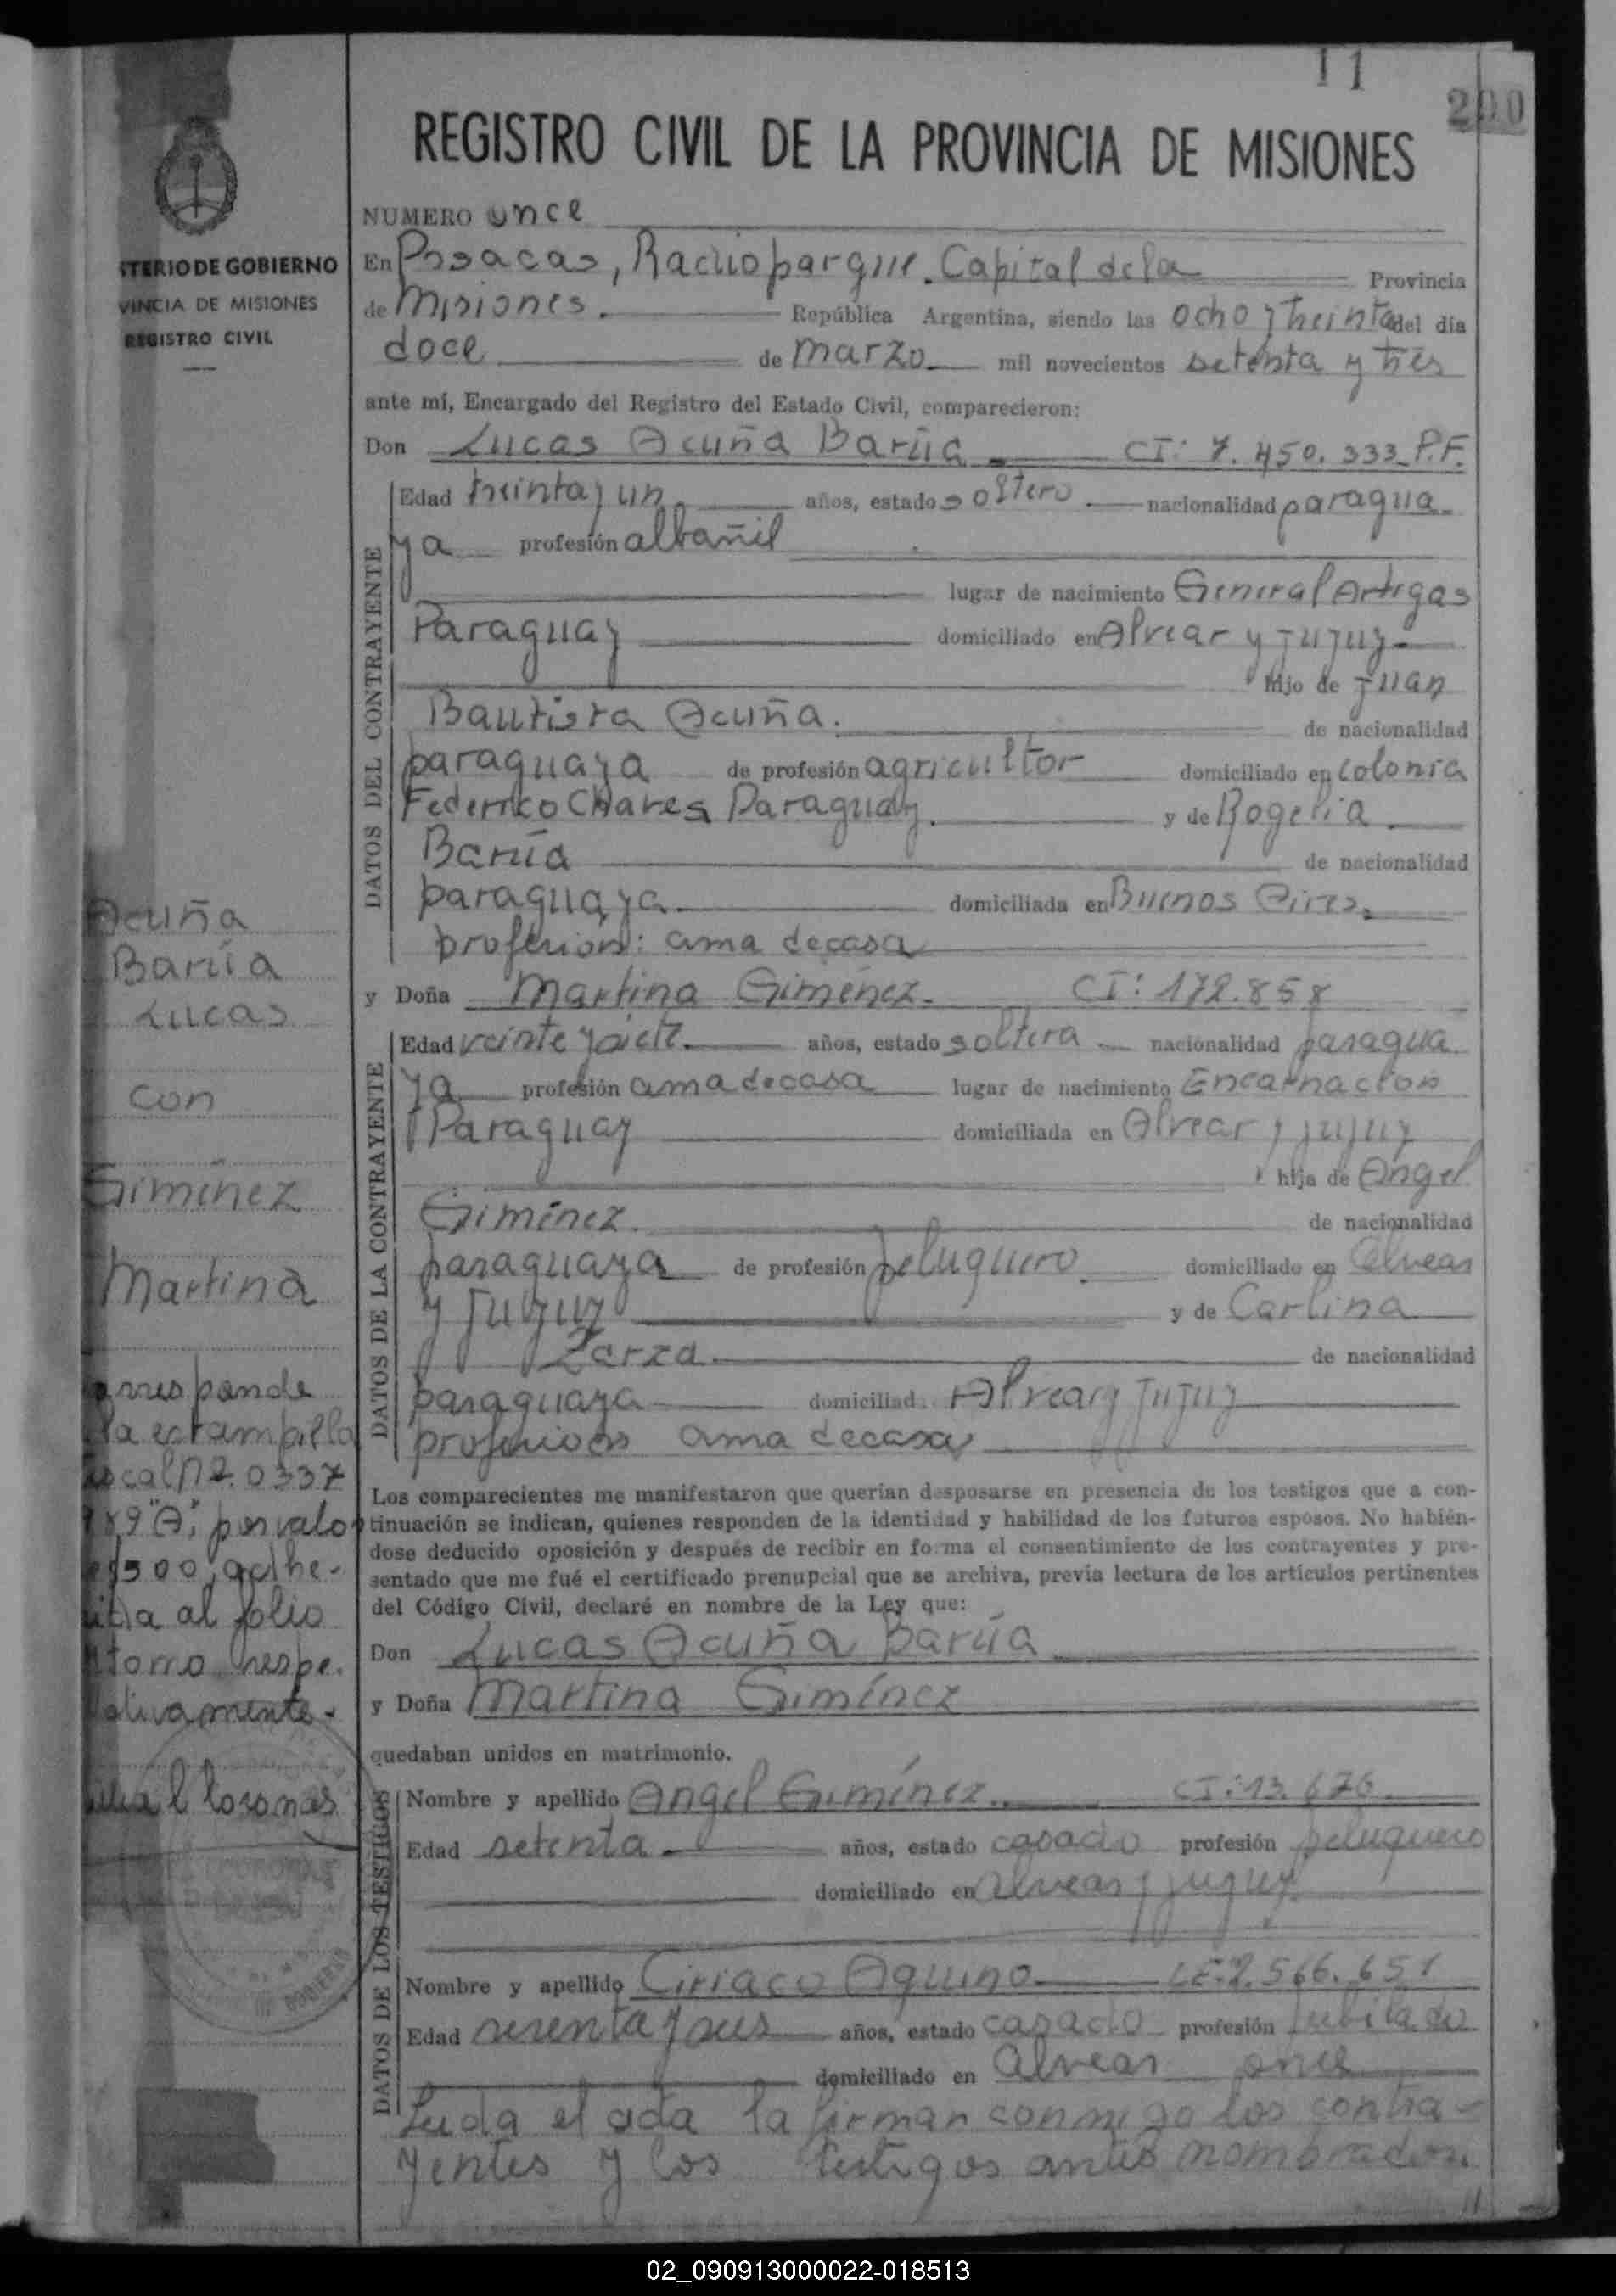 11
200
REGISTRO CIVIL DE LA PROVINCIA DE MISIONES
NUMERO once
TERIO DE GOBIERNO
VINCIA DE MISIONES
REGISTRO CIVIL
En Posadas, Radio parque. Capital de la Provincia
de Misiones. República Argentina, siendo las ocho y treinta del día
doce de marzo mil novecientos setenta y tres
ante mí, Encargado del Registro del Estado Civil, comparecieron:
Don Lucas Acuña Barúa CI: 7.450.333 P.F.
DATOS DEL CONTRAYENTE
Edad treinta y un años, estado soltero nacionalidad paragua-
ya profesión albañil
lugar de nacimiento General Artigas
Paraguay domiciliado en Alvear y Jujuy
hijo de Juan
Bautista Acuña. de nacionalidad
paraguaya de profesión agricultor domiciliado en colonia
Federico Chaves Paraguay. y de Rogelia
Barúa de nacionalidad
paraguaya. domiciliada en Buenos Aires.
profesion: ama de casa
y Doña Martina Giménez. CI: 172.858
DATOS DE LA CONTRAYENTE
Edad veinte y siete. años, estado soltera nacionalidad paragua
ya profesión ama de casa lugar de nacimiento Encarnacion
Paraguay domiciliada en Alvear y Jujuy
hija de Angel
Giménez. de nacionalidad
paraguaya de profesión peluquero domiciliado en Alvear
y Jujuy y de Carlina
Zarza. de nacionalidad
paraguaya domiciliad Alvear y Jujuy
profesion ama de casa
Los comparecientes me manifestaron que querían desposarse en presencia de los testigos que a con-
tinuación se indican, quienes responden de la identidad y habilidad de los futuros esposos. No habién-
dose deducido oposición y después de recibir en forma el consentimiento de los contrayentes y pre-
sentado que me fué el certificado prenupcial que se archiva, previa lectura de los artículos pertinentes
del Código Civil, declaré en nombre de la Ley que:
Don Lucas Acuña Barúa
y Doña Martina Giménez
quedaban unidos en matrimonio.
DATOS DE LOS TESTIGOS
Nombre y apellido Angel Giménez. CI: 13.676.
Edad setenta. años, estado casado profesión peluquero
domiciliado en Alvear y Jujuy.
Nombre y apellido Ciriaco Aquino LE: 2.566.651
Edad sesenta y seis años, estado casado profesión Jubilado
domiciliado en Alvear once
Leida el acta la firman conmigo los contra-
yentes y los testigos antes nombrados.
11
Acuña
Barúa
Lucas
con
Giménez
Martina
orresponde
la estampilla
iscal nº 0337
"A", por valo
500, adhe-
ida al folio
torno respe.
ctivamente.
GOBIERNO
02_090913000022-018513